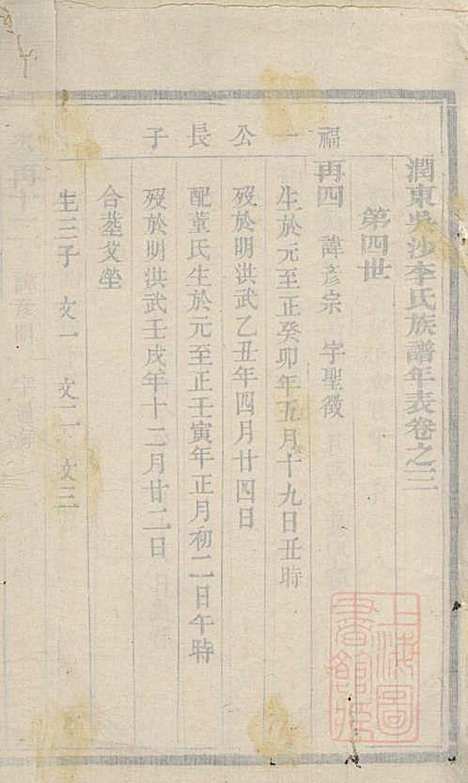 潤東吳沙李氏族譜年表卷之三
第四世
福一公長子
再四 諱彥宗 字聖徵
生於元至正癸卯年五月十九日丑時
歿於明洪武乙丑年四月廿四日
配董氏生於元至正壬寅年正月初二日午時
歿於明洪武壬戌年十二月廿二日
合塟艾塋
生三子 文一 文二 文三
上海圖書館藏